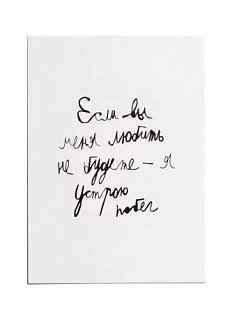 Если вы
меня любить
не будете — я
устрою
побег